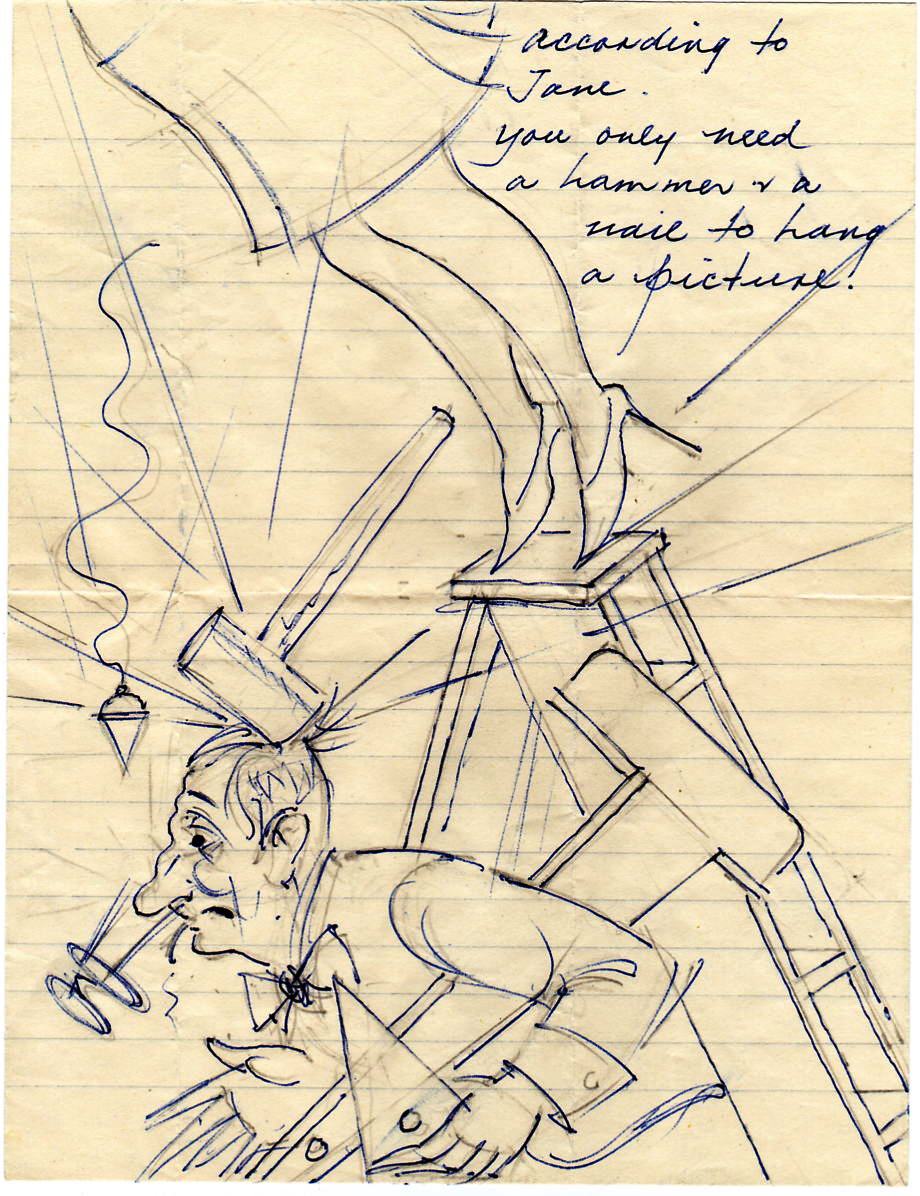 according to
Jane.
you only need
a hammer & a
nail to hang
a picture!